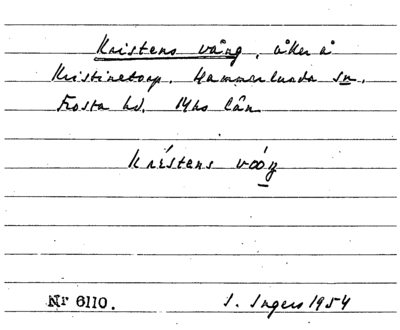 Kristens vång, åker å
Kristinetorp, Hammarlunda sn,
Frosta hd. Mhs län
Krístens vóóŋ
Nr 6110. I. Ingers 1954